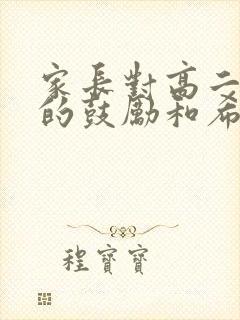 家長對高二
的鼓勵和希
程寶寶